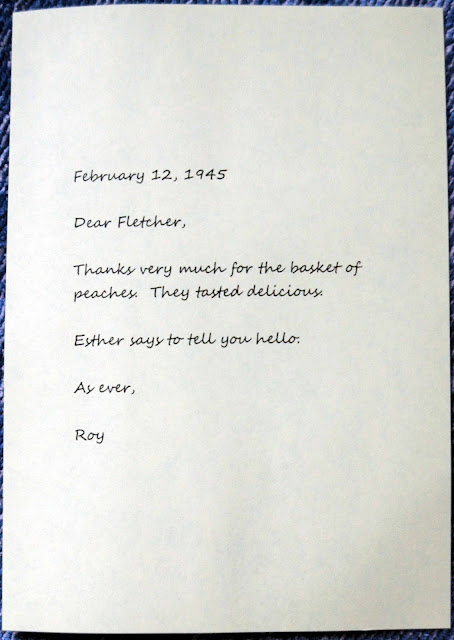 February 12, 1945
Dear Fletcher,
Thanks very much for the basket of
peaches.  They tasted delicious.
Esther says to tell you hello.
As ever,
Roy